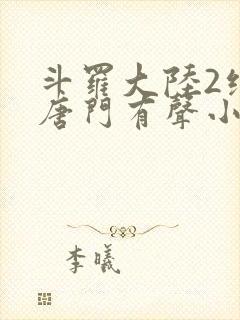 斗羅大陸2
唐門有聲小
李曦